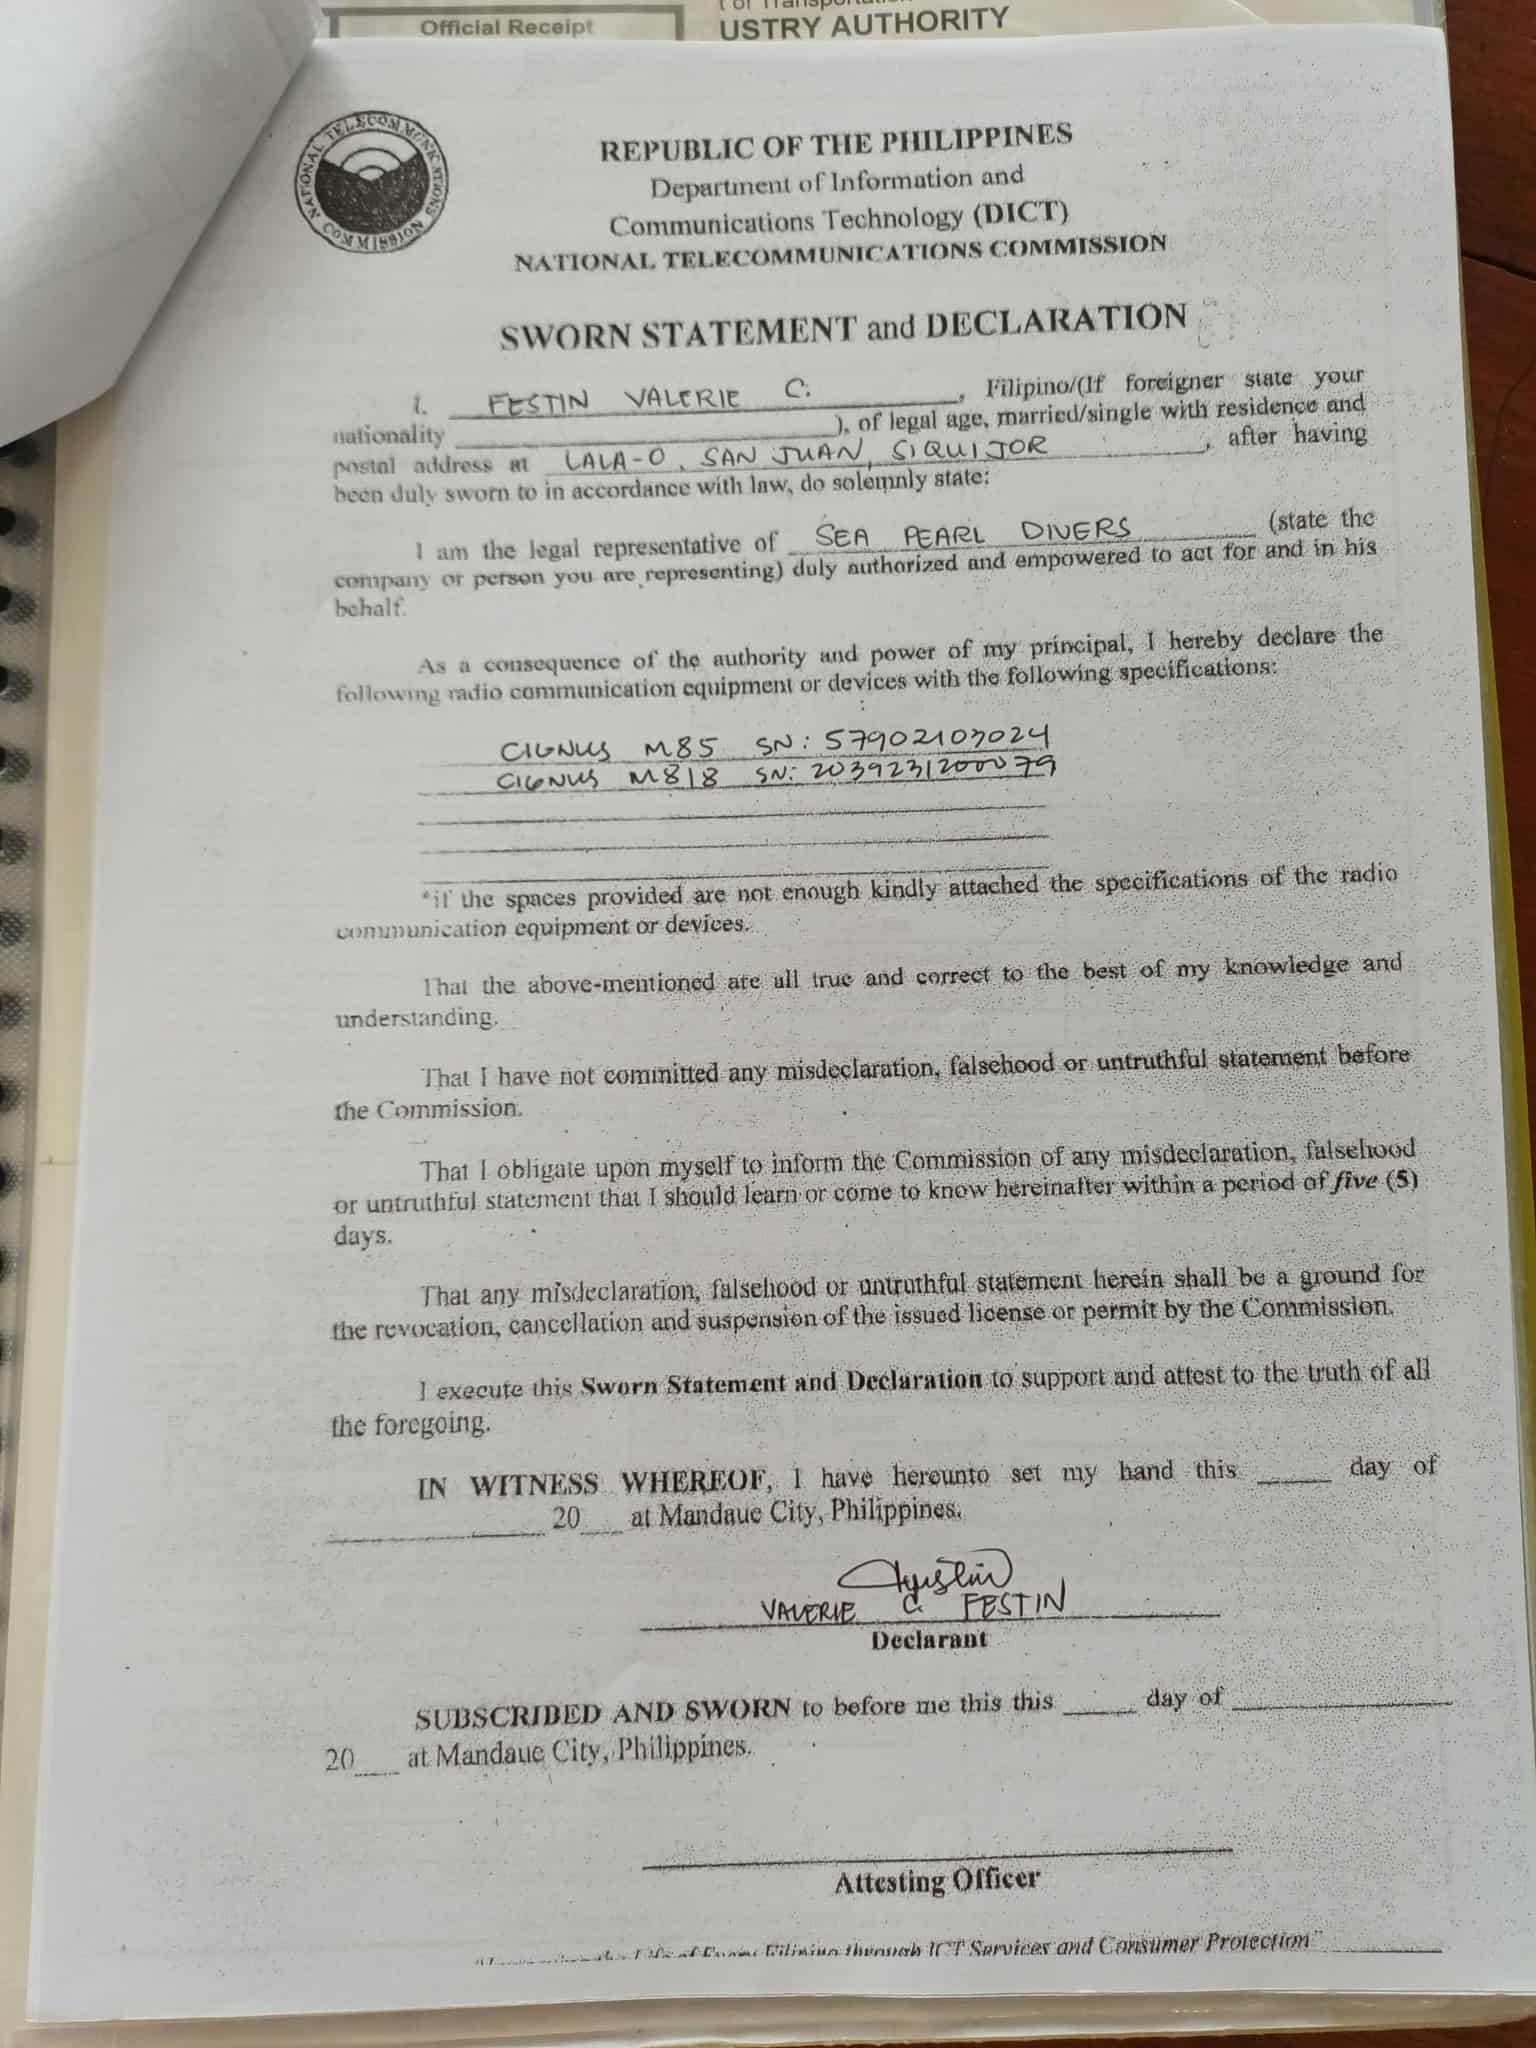 Official Receipt
USTRY AUTHORITY
NATIONAL TELECOMMUNICATIONS COMMISSION
REPUBLIC OF THE PHILIPPINES
Department of Information and
Communications Technology (DICT)
NATIONAL TELECOMMUNICATIONS COMMISSION
SWORN STATEMENT and DECLARATION
I, FESTIN VALERIE C. , Filipino/(If foreigner state your
nationality ), of legal age, married/single with residence and
postal address at LALA-O, SAN JUAN, SIQUIJOR , after having
been duly sworn to in accordance with law, do solemnly state:
I am the legal representative of SEA PEARL DIVERS (state the
company or person you are representing) duly authorized and empowered to act for and in his
behalf.
As a consequence of the authority and power of my principal, I hereby declare the
following radio communication equipment or devices with the following specifications:
CIGNUS M85 SN: 57902103024
CIGNUS M818 SN: 2039231200079
*if the spaces provided are not enough kindly attached the specifications of the radio
communication equipment or devices.
That the above-mentioned are all true and correct to the best of my knowledge and
understanding.
That I have not committed any misdeclaration, falsehood or untruthful statement before
the Commission.
That I obligate upon myself to inform the Commission of any misdeclaration, falsehood
or untruthful statement that I should learn or come to know hereinafter within a period of five (5)
days.
That any misdeclaration, falsehood or untruthful statement herein shall be a ground for
the revocation, cancellation and suspension of the issued license or permit by the Commission.
I execute this Sworn Statement and Declaration to support and attest to the truth of all
the foregoing.
IN WITNESS WHEREOF, I have hereunto set my hand this ____ day of
____ 20__ at Mandaue City, Philippines.
VALERIE C. FESTIN
Declarant
SUBSCRIBED AND SWORN to before me this this ____ day of ____
20__ at Mandaue City, Philippines.
Attesting Officer
Life of Every Filipino through ICT Services and Consumer Protection"